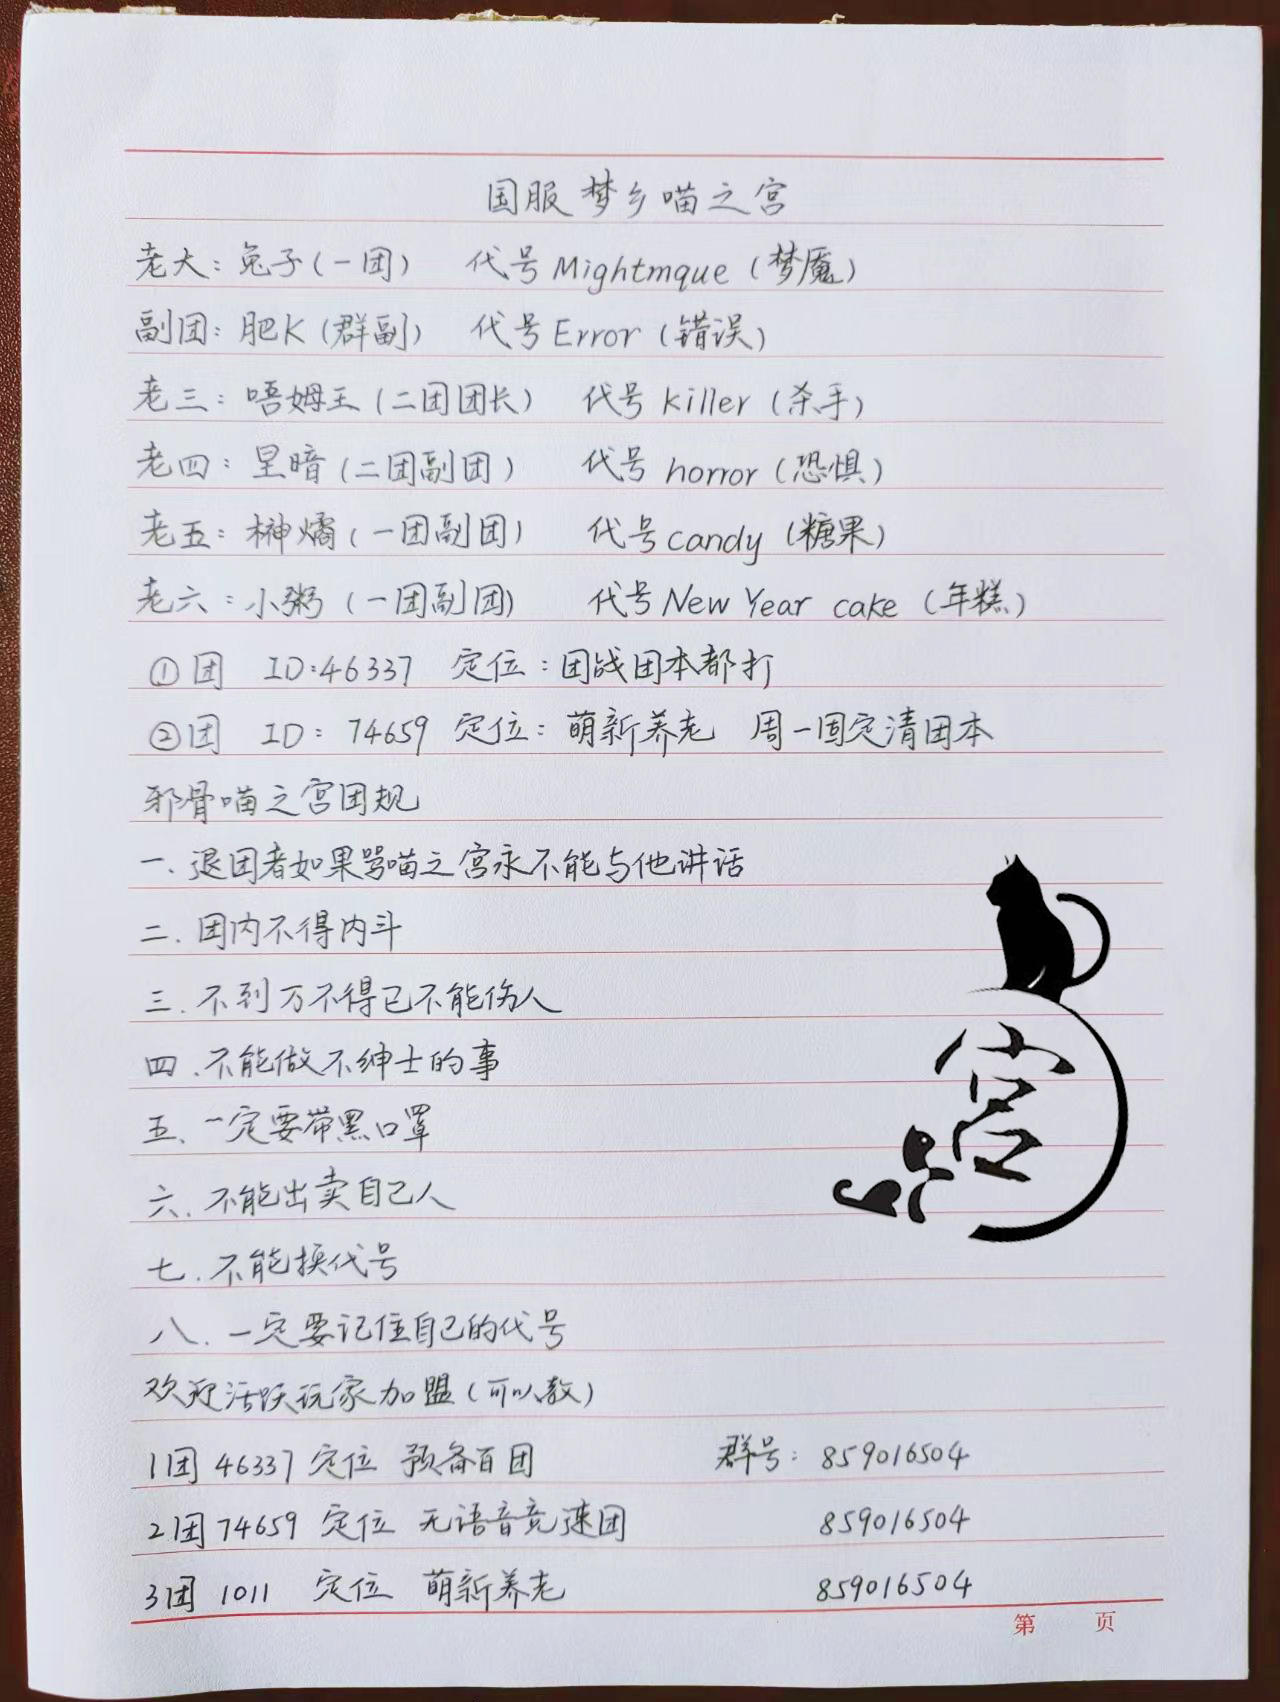 国服梦乡喵之宫
老大：兔子（一团） 代号Mightmque（梦魇）
副团：肥K（群副） 代号Error（错误）
老三：唔姆王（二团团长） 代号killer（杀手）
老四：星暗（二团副团） 代号horror（恐惧）
老五：榊燏（一团副团） 代号candy（糖果）
老六：小粥（一团副团） 代号New Year cake（年糕）
①团 ID:46337 定位：团战团本都打
②团 ID：74659 定位：萌新养老 周一固定清团本
邪骨喵之宫团规
一.退团者如果骂喵之宫永不能与他讲话
二.团内不得内斗
三.不到万不得已不能伤人
四.不能做不绅士的事
五.一定要带黑口罩
六.不能出卖自己人
七.不能换代号
八.一定要记住自己的代号
欢迎活跃玩家加盟（可以教）
1团 46337 定位 预备百团 群号：859016504
2团 74659 定位 无语音竞速团 859016504
3团 1011 定位 萌新养老 859016504
宫
第 页